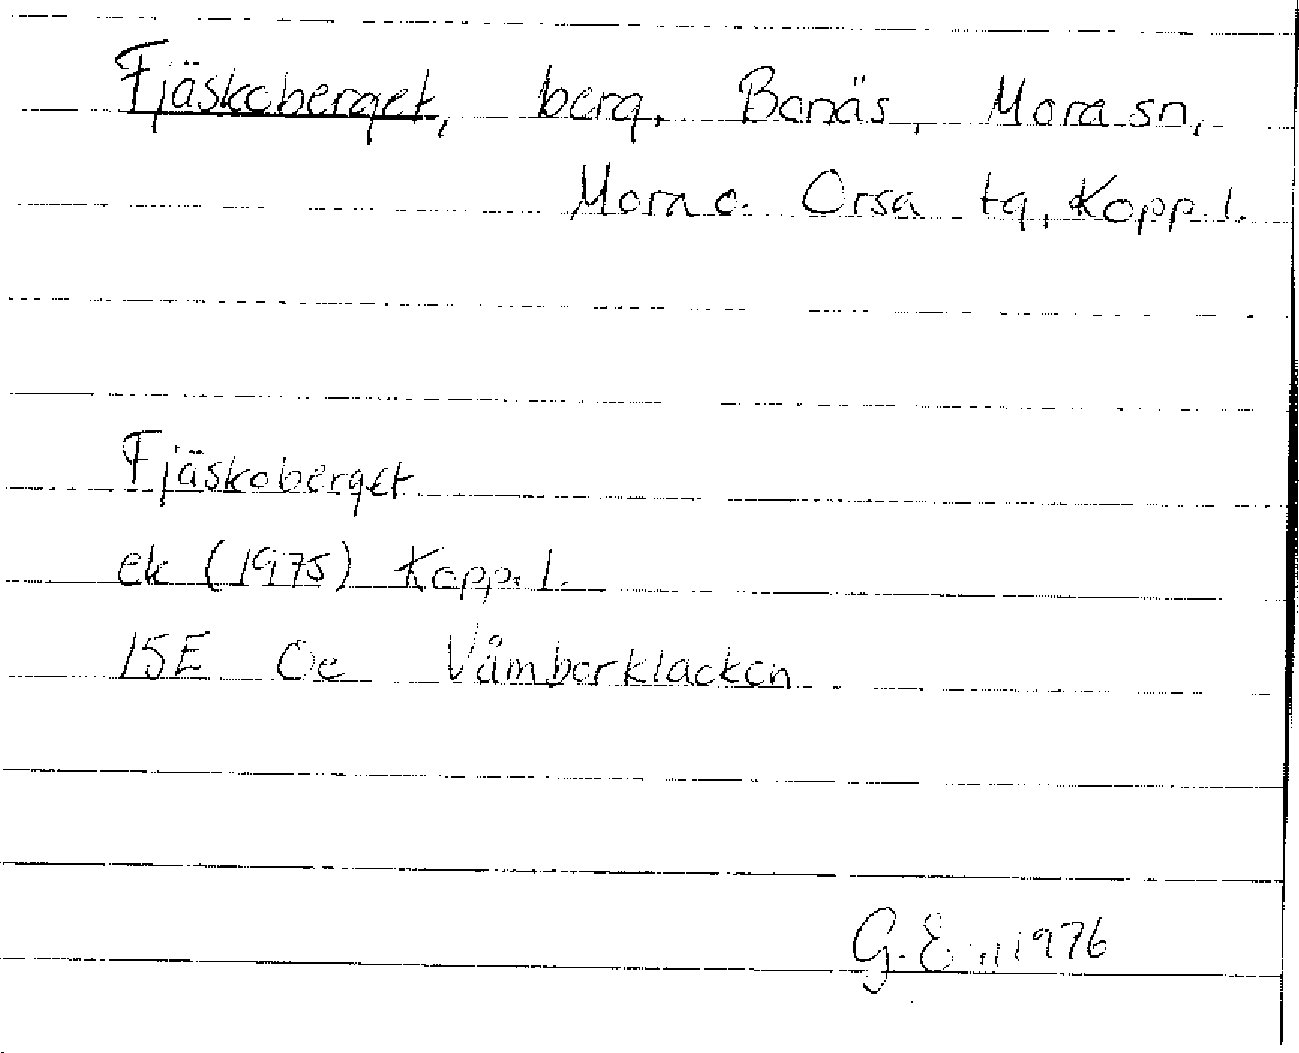 Fjäskoberget, berg, Bonäs, Mora sn,
Mora o. Orsa tg, Kopp. l.
Fjäskoberget
ek (1975) Kopp. l.
15E 0e Våmberklacken
G. E 1976